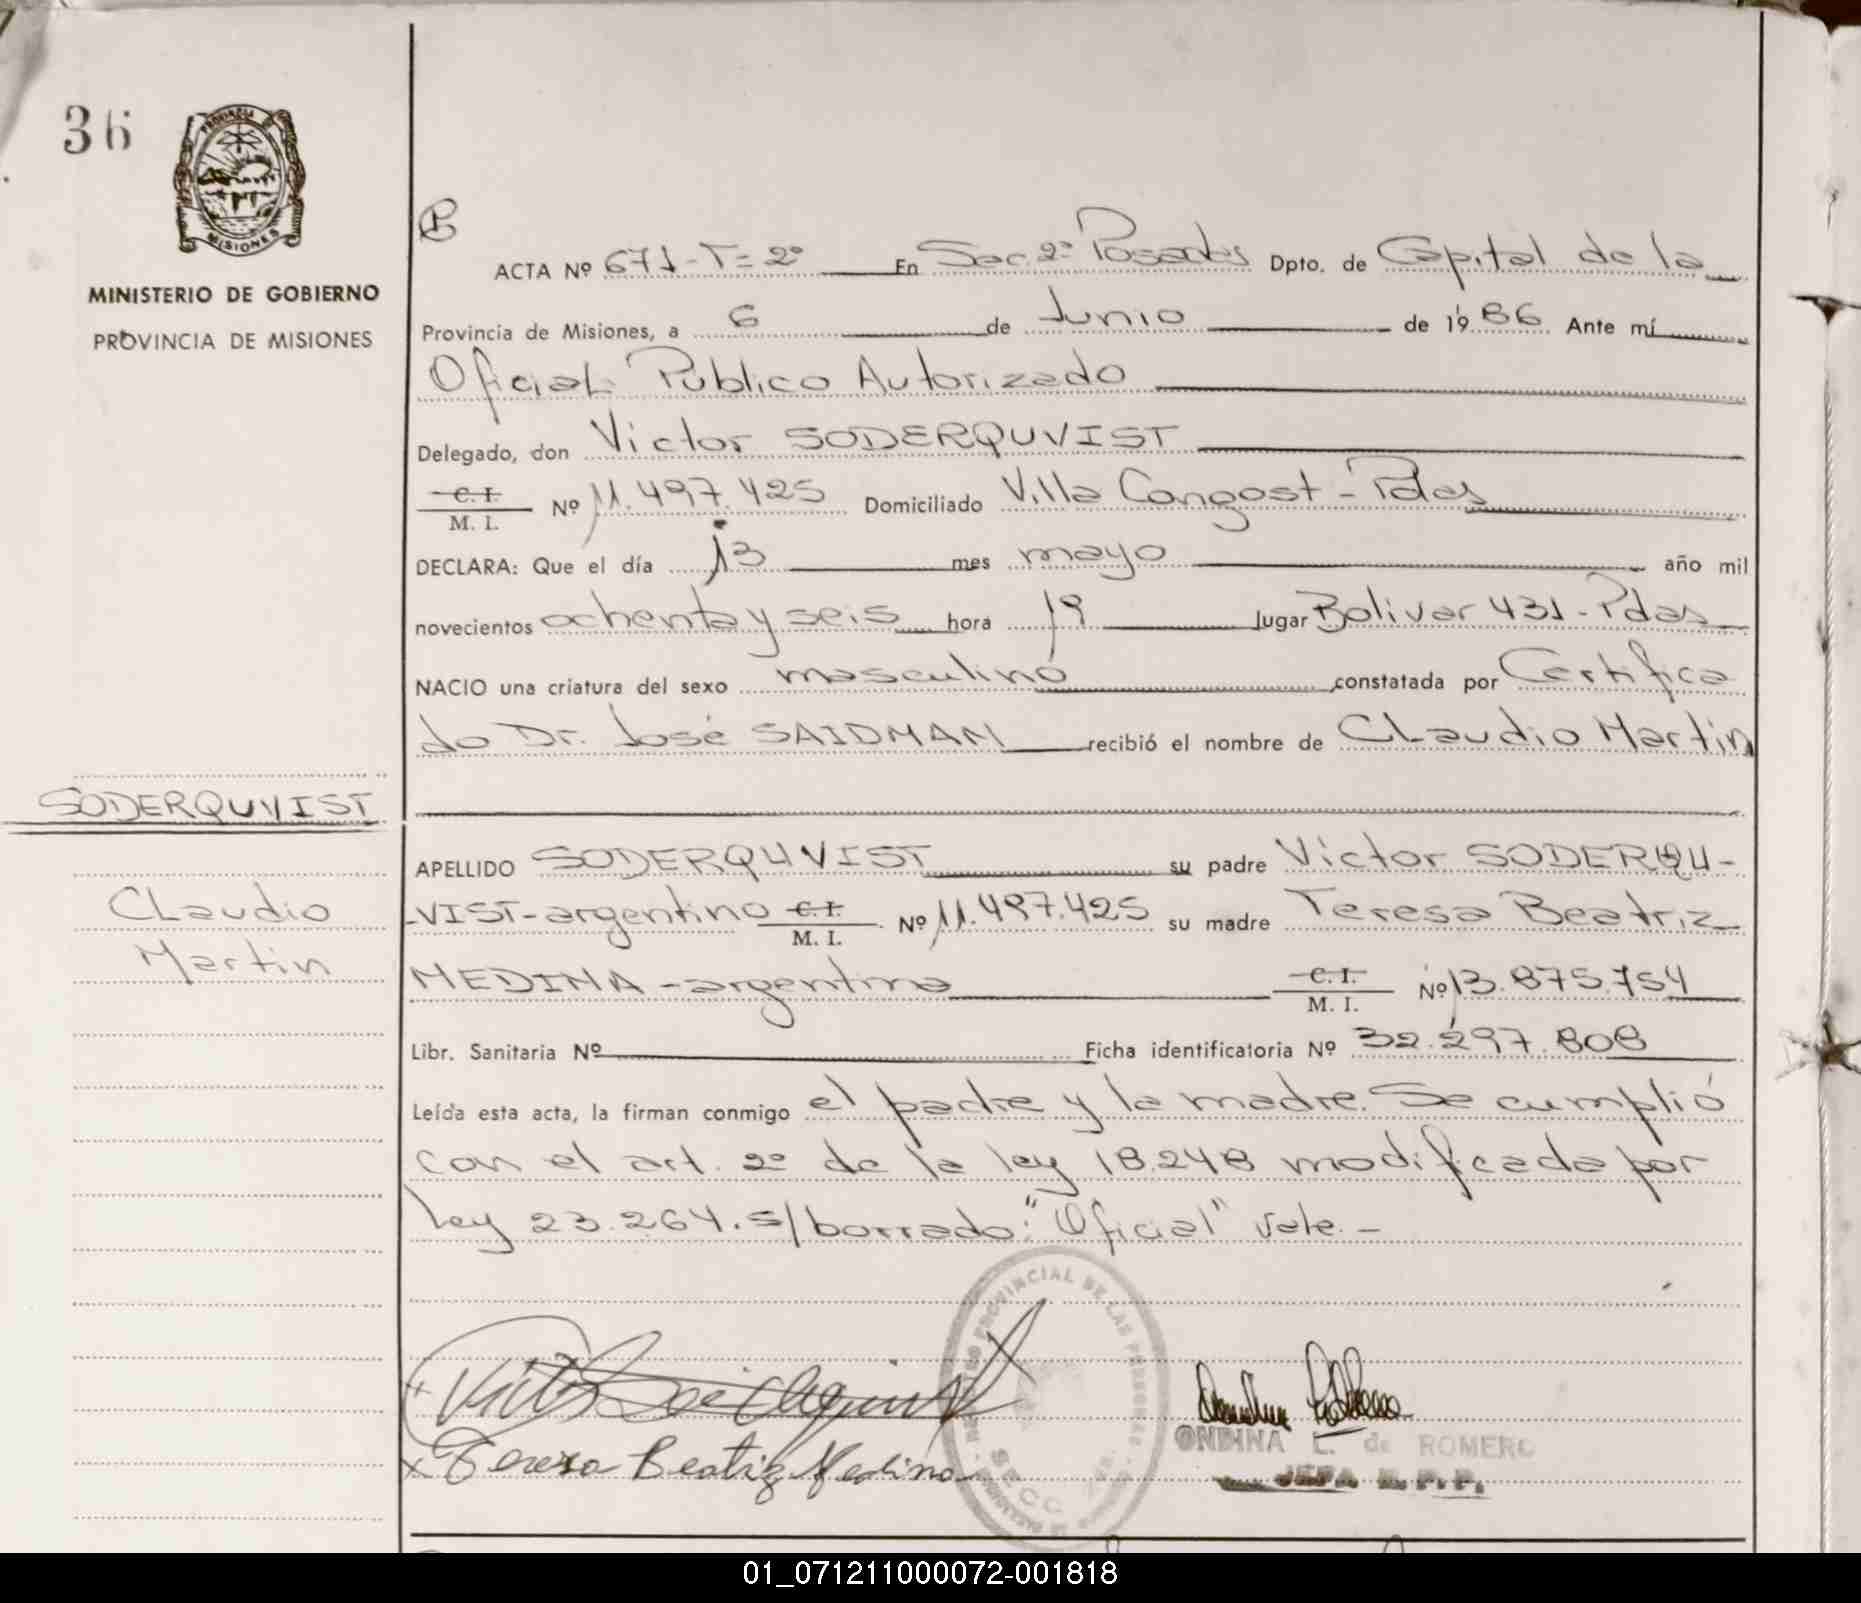 36
PROVINCIA DE
MISIONES
MINISTERIO DE GOBIERNO
PROVINCIA DE MISIONES
ACTA Nº 671-T=2º En Sec. 2ª Posadas Dpto. de Capital de la
Provincia de Misiones, a 6 de Junio de 1986 Ante mí
Oficial Público Autorizado
Delegado, don Victor SODERQUVIST
C. I.
M. I. Nº 11.497.425 Domiciliado Villa Congost - Pdas
DECLARA: Que el día 13 mes mayo año mil
novecientos ochenta y seis hora 19 lugar Bolivar 431 - Pdas
NACIO una criatura del sexo masculino constatada por Certifica
do Dr. José SAIDMAN recibió el nombre de Claudio Martin
SODERQUVIST
Claudio
Martin
APELLIDO SODERQUVIST su padre Victor SODERQU-
-VIST-argentino C. I. M. I. Nº 11.497.425 su madre Teresa Beatriz
MEDINA - argentina C. I. M. I. Nº 13.875.754
Libr. Sanitaria Nº Ficha identificatoria Nº 32.297.808
Leída esta acta, la firman conmigo el padre y la madre. Se cumplió
con el art. 2º de la ley 18.248 modificada por
ley 23.264. s/borrado: "Oficial" vale.-
PROVINCIAL DE LAS PERSONAS
SECC.
Teresa Beatriz Medina
ONDINA L. de ROMERO
JEFA
01_071211000072-001818